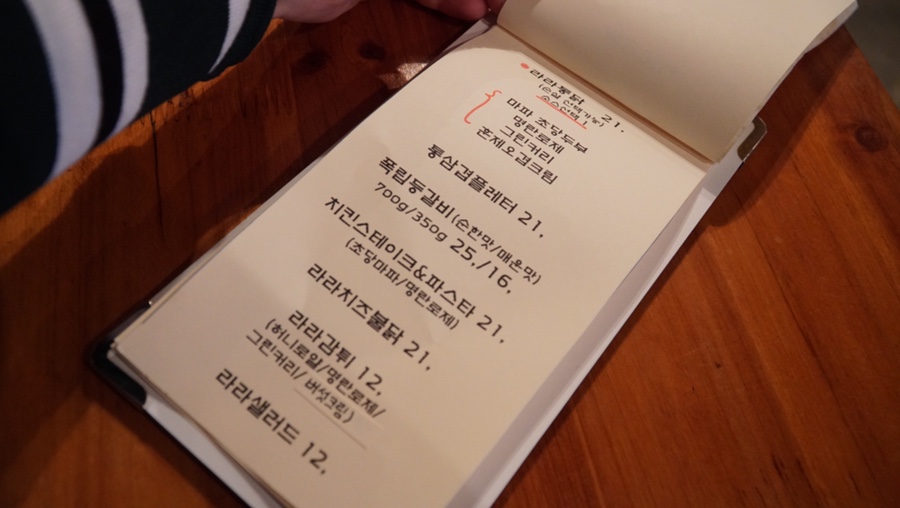 라라통닭 21.
(순살 선택가능)
소스선택 1
마파 초당두부
명란로제
그린커리
훈제오겹크림
통삼겹플레터 21,
폭립등갈비(순한맛/매운맛)
700g/350g 25,/16,
치킨스테이크&파스타 21,
(초당마파/명란로제)
라라치즈불닭 21,
라라감튀 12,
(허니로일/명란로제/
그린커리/버섯크림)
라라샐러드 12,